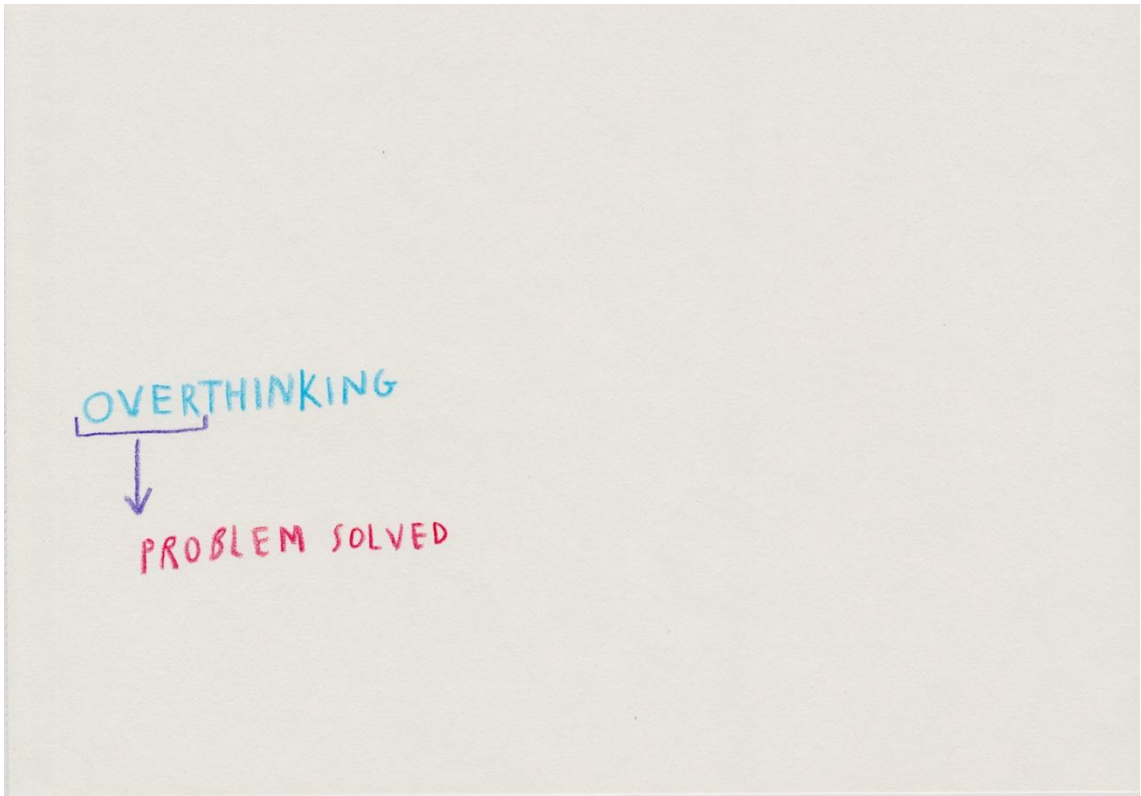 OVERTHINKING
PROBLEM SOLVED